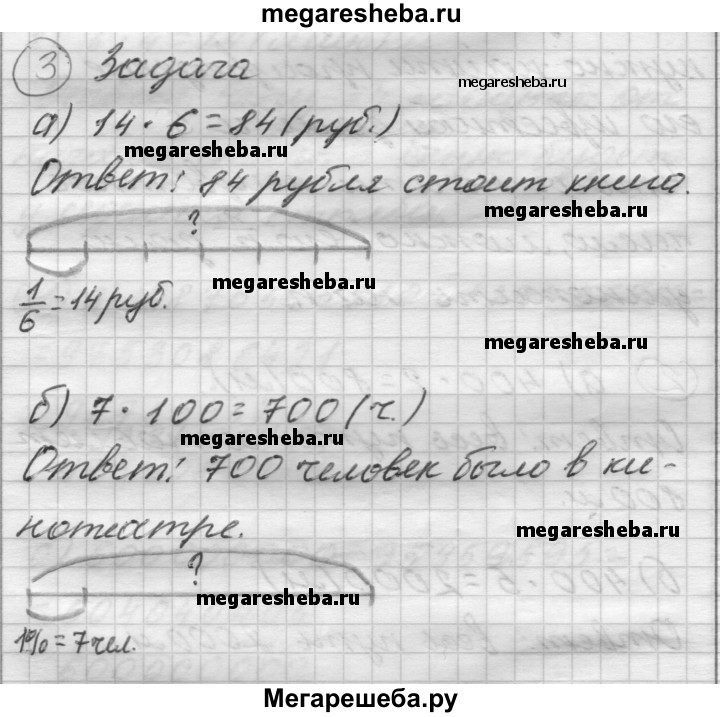 megaresheba.ru
3 Задача
megaresheba.ru
а) 14 · 6 = 84 (руб.)
megaresheba.ru
Ответ: 84 рубля стоит книга.
megaresheba.ru
?
megaresheba.ru
1/6 = 14 руб.
megaresheba.ru
б) 7 · 100 = 700 (ч.)
megaresheba.ru
Ответ: 700 человек было в ки-
нотеатре.
megaresheba.ru
?
megaresheba.ru
1% = 7 чел.
Мегарешеба.ру